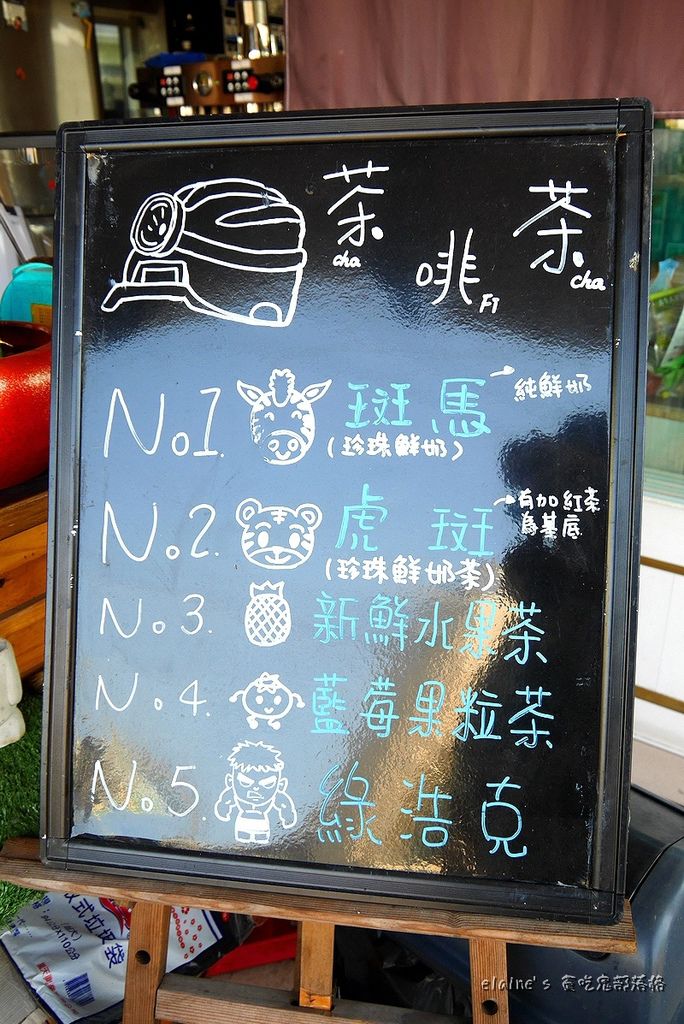 茶 啡 茶
cha Fi cha
No1. 斑馬
純鮮奶
(珍珠鮮奶)
No.2. 虎斑
有加紅茶
為基底
(珍珠鮮奶茶)
No.3. 新鮮水果茶
No.4. 藍莓果粒茶
No.5. 綠浩克
式垃圾袋
elaine's 貪吃鬼部落格